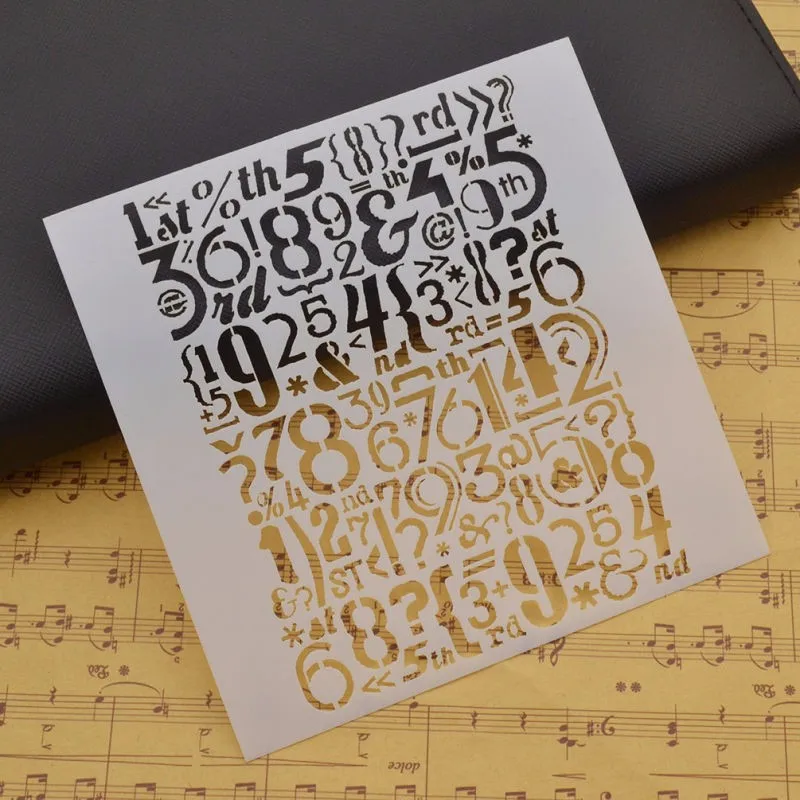 1st « % th 5 { 8 } ? rd » ?
3 % 6 ! 8 9 = 2 & th 4 % 5 *
@ rd @ ! 9 th
{ 1 9 2 5 < 4 { » 3 * < 8 ? st
+ 5 * & nd rd = 5 6
7 8 39 th 1 4 2
? 6 * 7 6
% 4 2 nd 7 9 3 @ 5 ? }
1 ) 2 7 ! ? & ? 8 @ 0
& ? ST < * = 9 2 5 4
* st 8 ? { 3 + * & nd
6 « 5 th rd
dolce